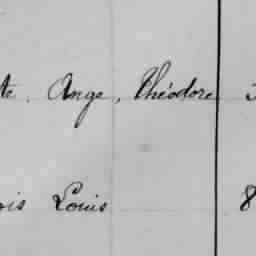 te, Ange, Théodore
ois Louis 8